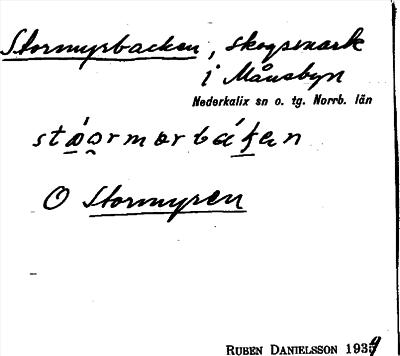 Stormyrbacken, skogsmark
i Månsbyn
Nederkalix sn o. tg. Norrb. län
O Stormyren
RUBEN DANIELSSON 1934